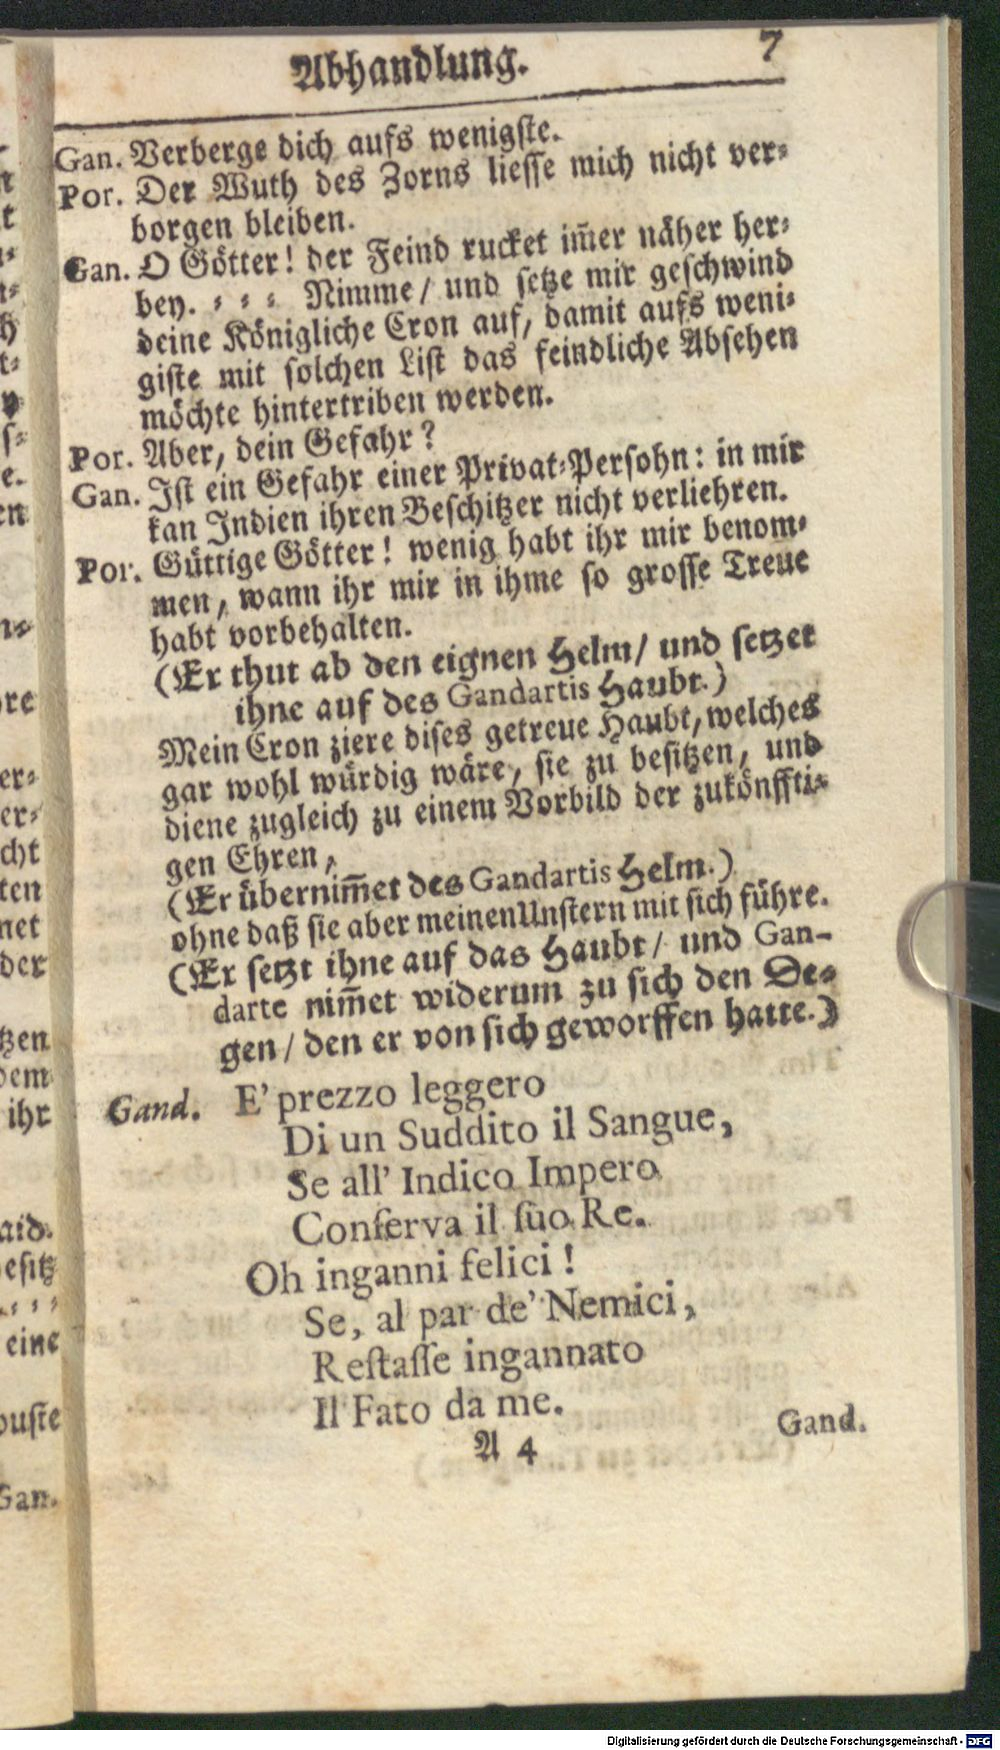 Abhandlung. 7
Gan. Verberge dich aufs wenigste.
Por. Der Wuth des Zorns liesse mich nicht ver-
borgen bleiben.
Gan. O Götter! der Feind rucket im̅er näher her-
bey. - - - Nimme / und setze mir geschwind
deine Königliche Cron auf, damit aufs weni-
giste mit solchen List das feindliche Absehen
möchte hintertriben werden.
Por. Aber, dein Gefahr?
Gan. Ist ein Gefahr einer Privat-Persohn: in mir
kan Indien ihren Beschitzer nicht verliehren.
Por. Güttige Götter! wenig habt ihr mir benom-
men, wann ihr mir in ihme so grosse Treue
habt vorbehalten.
(Er thut ab den eignen Helm / und setzet
ihne auf des Gandartis Haubt.)
Mein Cron ziere dises getreue Haubt, welches
gar wohl würdig wäre, sie zu besitzen, und
diene zugleich zu einem Vorbild der zukönffti-
gen Ehren,
(Er übernim̅et des Gandartis Helm.)
ohne daß sie aber meinen Unstern mit sich führe.
(Er setzt ihne auf das Haubt / und Gan-
darte nim̅et widerum zu sich den De-
gen / den er von sich geworffen hatte.)
Gand. E' prezzo leggero
Di un Suddito il Sangue,
Se all' Indico Impero
Conſerva il ſuo Re.
Oh inganni felici!
Se, al par de' Nemici,
Reſtaſſe ingannato
Il Fato da me.
A 4 Gand.
Digitalisierung gefördert durch die Deutsche Forschungsgemeinschaft - DFG